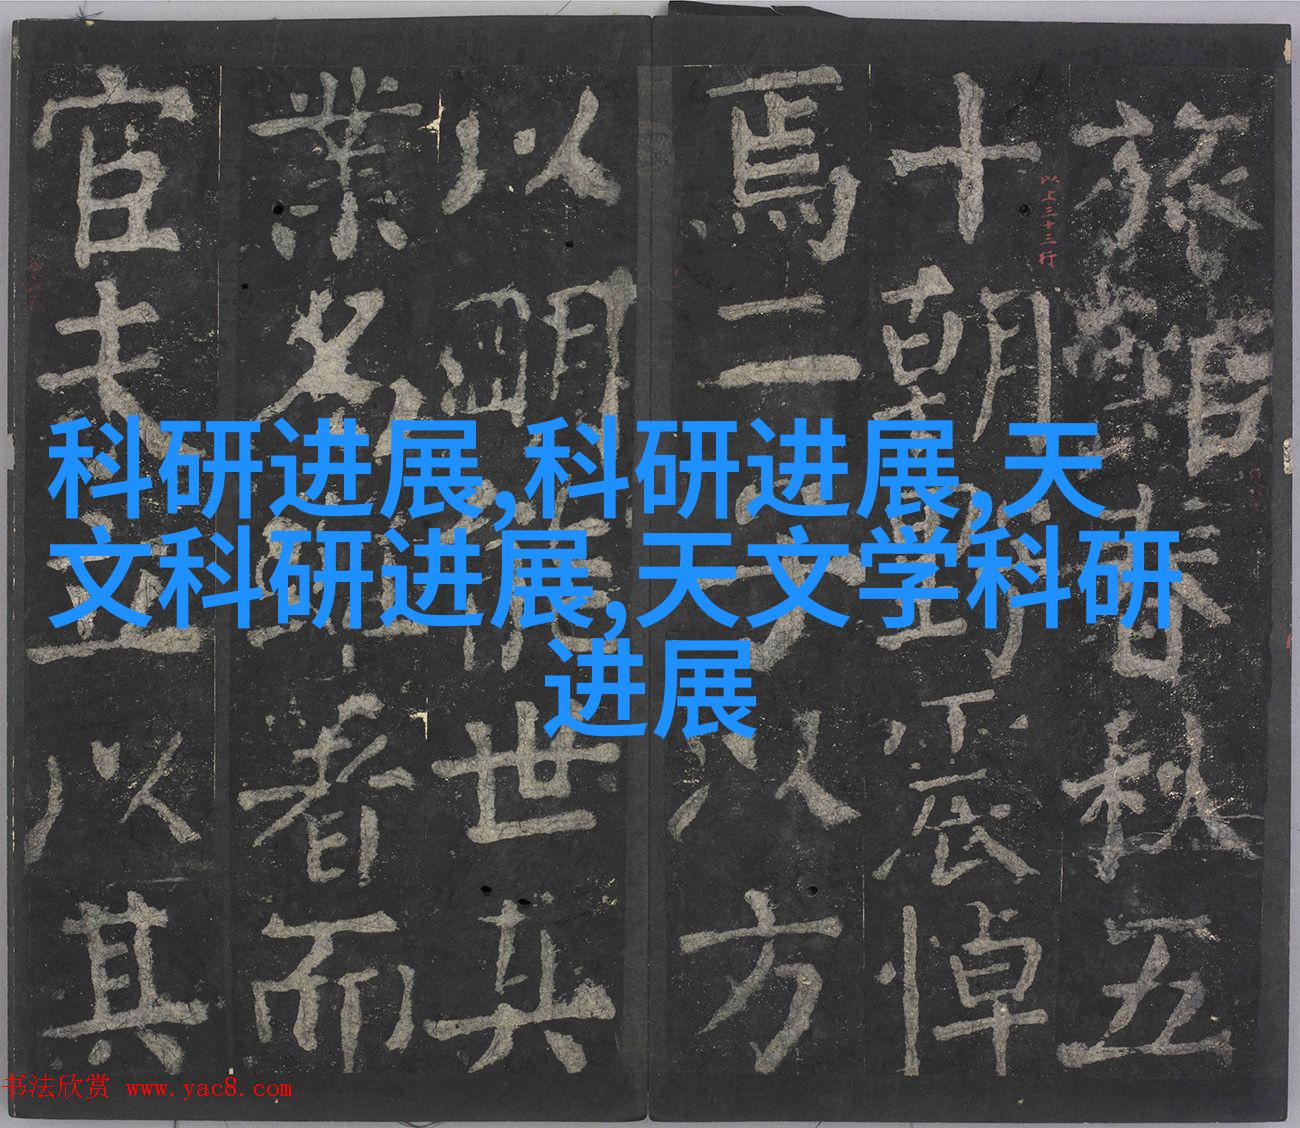 科研进展,科研进展,天
文科研进展,天文学科研
进展
旅館春秋五
以上三十三行
十朝野震悼
焉二以方
以明世其
業名者而
官夫立以其
书法欣赏 www.yac8.com